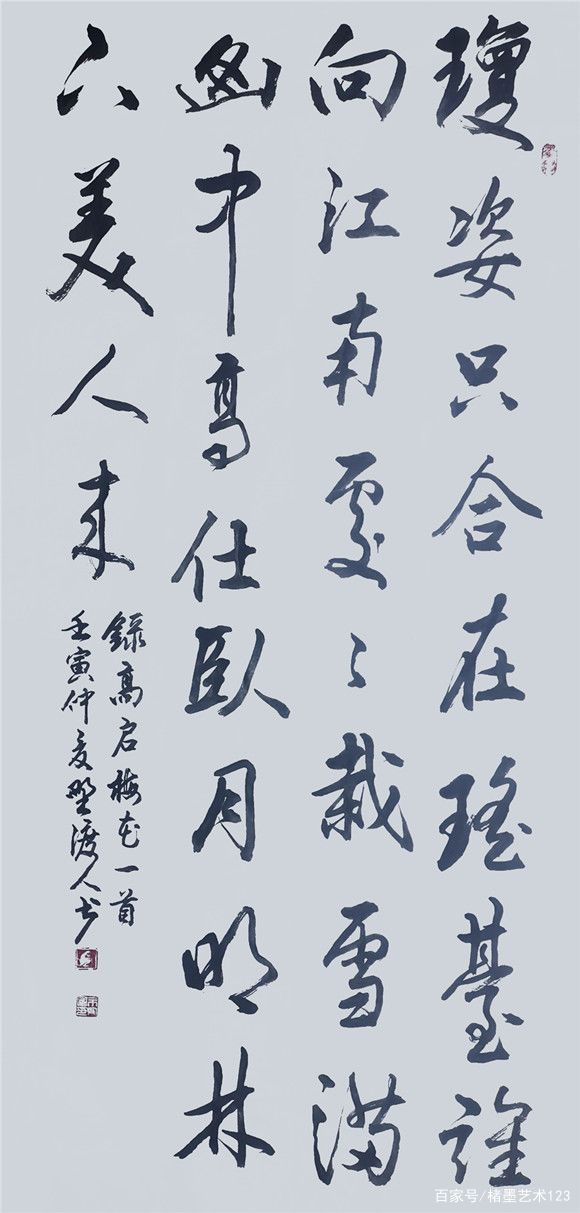 瓊姿只合在瑤臺誰
向江南處々栽雪滿
幽中高仕臥月明林
下美人来
錄高启梅花一首
壬寅仲夏野渡人书
百家号/楮墨艺术123